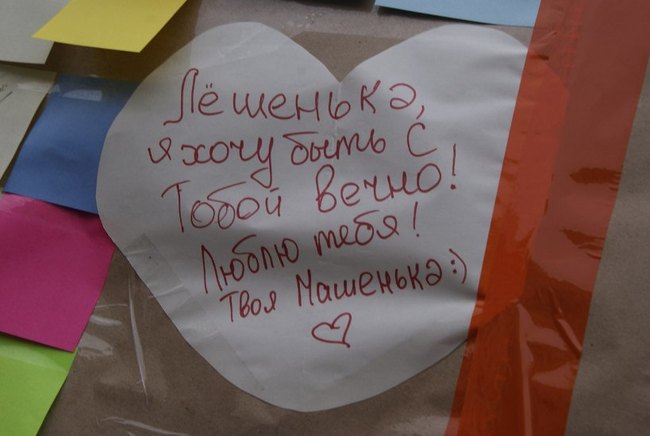 Лёшенька,
я хочу быть с
Тобой вечно!
Люблю тебя!
Твоя Машенька:)